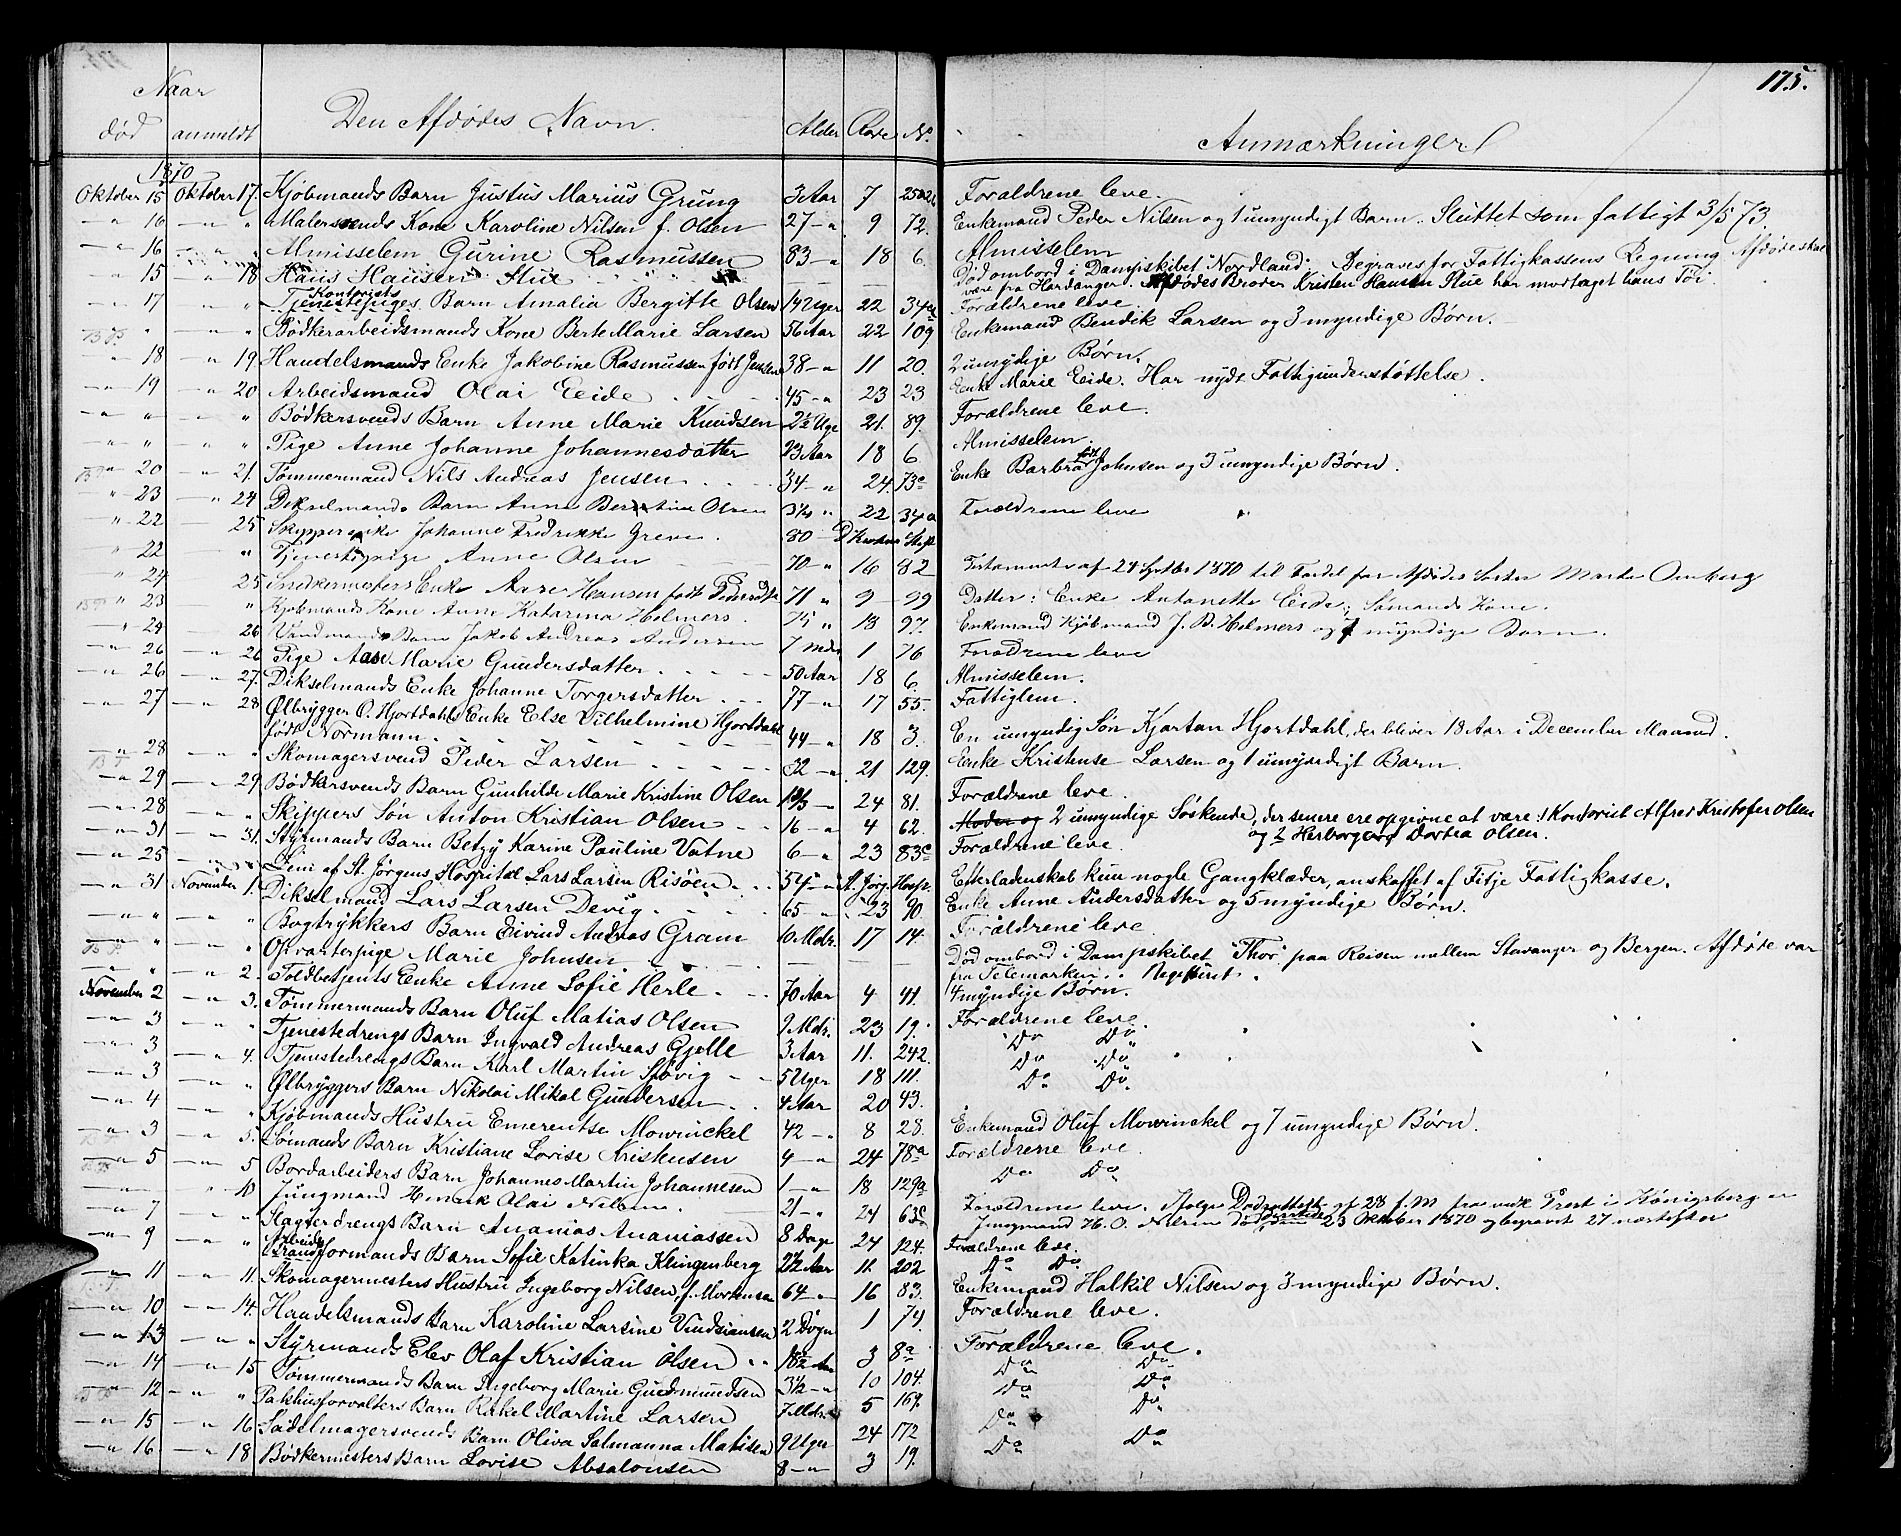 175.
Naar
død anmeldt Den Afdødes Navn. Alder Rode No. Anmærkninger
1870
Oktober 15 Oktober 17. Kjøbmands Barn Justus Marius Grung 3 Aar 7 Forældrene leve.
" 16 " " Malersvends Kone Karoline Nilsen f. Olsen 27 " 9 72. Enkemand Peder Nilsen og 1 umyndigt Barn. Sluttet som fattigt 3/5 73
" 16 " " Almisselem Gurine Rasmussen 83 " 18 6. Almisselem
" 15 " 18 Hans Hansen Flue Død ombord i Dampskibet "Nordland". Begraves for Fattigkassens Regning Afdøde skal
være fra Hardanger. Afdødes Broder Kristen Hansen Flue har modtaget hans Tøi.
" 17 " " Kontorists Barn Amalia Bergitte Olsen 14 Uger 22 34a Forældrene leve.
" " " Bødkerarbeidsmands Kone Berte Marie Larsen 56 Aar 22 109 Enkemand Bendik Larsen og 3 myndige Børn.
" 18 " 19 Handelsmands Enke Jakobine Rasmussen født Jensen 38 " 11 20. 2 umydige Børn.
" 19 " 20 Arbeidsmand Olai Eide 45 " 23 23 Enke Marie Eide. Har nydt Fattigunderstøttelse.
" " " " Bødkersvends Barn Anne Marie Knudsen 2½ Uge 21. 89. Forældrene leve.
" " " " Pige Anne Johanne Johannesdatter 23 Aar 18 6 Almisselem.
" 20 " 21. Tømmermand Nils Andreas Jensen 34 " 24. 73c Enke Barbra født Johnsen og 3 umyndige Børn.
" 23 " 24 Dikselmands Barn Anne Berntine Olsen 3¼ " 22 34a Forældrene leve
" 22 25 Skipperenke Johanne Fredrikke Greve. 80
" 22 " Tjenestepige Anne Olsen 70 " 16 82 Testamente af 24 1870 til Fordel for Afdødes Søster
" 24 25 Snedkermesters Enke Hansen født 71 " 9 99 Datter: Enke Antonette Eide, Sømands Kone.
" 23 " Kjøbmands Kone Anne Katarina Helmers. 75 " 13 97. Enkemand Kjøbmand J. B. Helmers og 7 myndige Børn.
" 24 26 Vandmands Barn Jakob Andreas Andersen 7 Mdr 1 76 Forældrene leve
" 26 " 26 Pige Aase Marie Gundersdatter 50 Aar 18 6. Almisselem.
" 26 " 27. Dikselmands Enke Johanne Torgersdatter 77 " 17 55. Fattiglem.
" 27 " 28 Ølbrygger O. Hjortdahls Enke Else Vilhelmine Hjortdahl
født Normann 44 " 18 3. En umyndig Søn Kjartan Hjortdahl, der bliver 18 Aar i December Maaned.
" 28 " " Skomagersvend Peder Larsen 32 " 21 129. Enke Kristense Larsen og 1 umyndigt Barn.
" 29 " 29 Bødkersvends Barn Gunhilde Marie Kristine Olsen 24 81. Forældrene leve.
" 28 " " Skippers Søn Anton Kristian Olsen 16 " 4 62. Moder og 2 umyndige Søskende, der senere ere opgivne at være: 1 Kontorist Alfred Kristofer Olsen
og 2 Dortea Olsen.
" 31 " 31. Styrmands Barn Betzy Karine Pauline Vatne 6 " 23 83c Forældrene leve.
" 25 Lem af St. Jørgens Hospital Lars Larsen Risøen 54 " St. Jørg. Hosp. Efterladenskab kun nogle Gangklæder, anskaffet af Fitje Fattigkasse.
" 31 November 1. Dikselmand Lars Larsen Devig 65 " 23 90. Enke Anne Andersdatter og 5 myndige Børn.
" " " Bogtrykkers Barn Eivind Andreas Gram 10 Mdr. 17 14. Forældrene leve.
" " " Opvarterpige Marie Johnsen Død ombord i Dampskibet "Thor" paa Reisen mellem Stavanger og Bergen. Afdøde var
fra Telemarken.
" " " 2. Toldbetjents Enke Anne Sofie Herle 70 Aar 4 41. 4 myndige Børn.
November 2 " 3. Tømmermands Barn Oluf Matias Olsen 9 Mdr. 23 19. Forældrene leve.
" 3 " Tjenestedrengs Barn Ingvald Andreas Gjelle 3 Aar 11. 242. Do Do
" 3 " 4. Tjenestedrengs Barn Karl Martin Støvig 5 Uger 18 111. Do Do
" 3 " " Ølbryggers Barn Nikolai Mikal Gundersen 4 Aar 20 43. Do Do
" 4 " " Kjøbmands Hustru Emerentse Mowinckel 42 " 8 28. Enkemand Oluf Mowinckel og 7 umyndige Børn.
" 3 " 5. Sømands Barn Kristiane Lovise Kristensen 4 " 24 78a Forældrene leve.
" 5 " 5 Bordarbeiders Barn Johannes Martin Johannesen 1 " 18 129a Do Do
" 10 Jungmand Henrik Olai Nilsen 21 " 24 63c Forældrene leve. Ifølge Dødsattest af 28 f. M. fra Prest i Königsberg er
Jungmand H. O. Nilsen død dersteds 23 Oktober 1870 og begravet 27 næstefter
" 7 " Slagterdrengs Barn Ananias Ananiassen 8 Dage 24 124. Forældrene leve.
" 9 " " Arbeidsformands Barn Sofie Katinka Klingenberg 2½ Aar 11. 202 Do Do
" 11 " 11. Skomagermesters Hustru Ingeborg Nilsen f. Mortensen 64 " 16 83. Enkemand Halkil Nilsen og 3 myndige Børn.
" 10 " 14. Handelsmands Barn Karoline Larsine Vindsiansen 2 Døgn 1 74 Forældrene leve.
" 13 " " Styrmands Elev Olaf Kristian Olsen 18½ Aar 3 8a Forældrene leve.
" 14 " 15 Tømmermands Barn Ingeborg Marie Gudmundsen 3½ " 10 104. Do Do
" 12 " " Pakhusforvalters Barn Rakel Martine Larsen 7 Mdr. 5 169. Do Do
" 15 " 16 Sadelmagersvends Barn Oliva Salmanna Matisen 9 Uger 24 172 Do Do
" 16 " 18 Bødkermesters Barn Lovise Absalonsen 8 " 3 19. Do Do